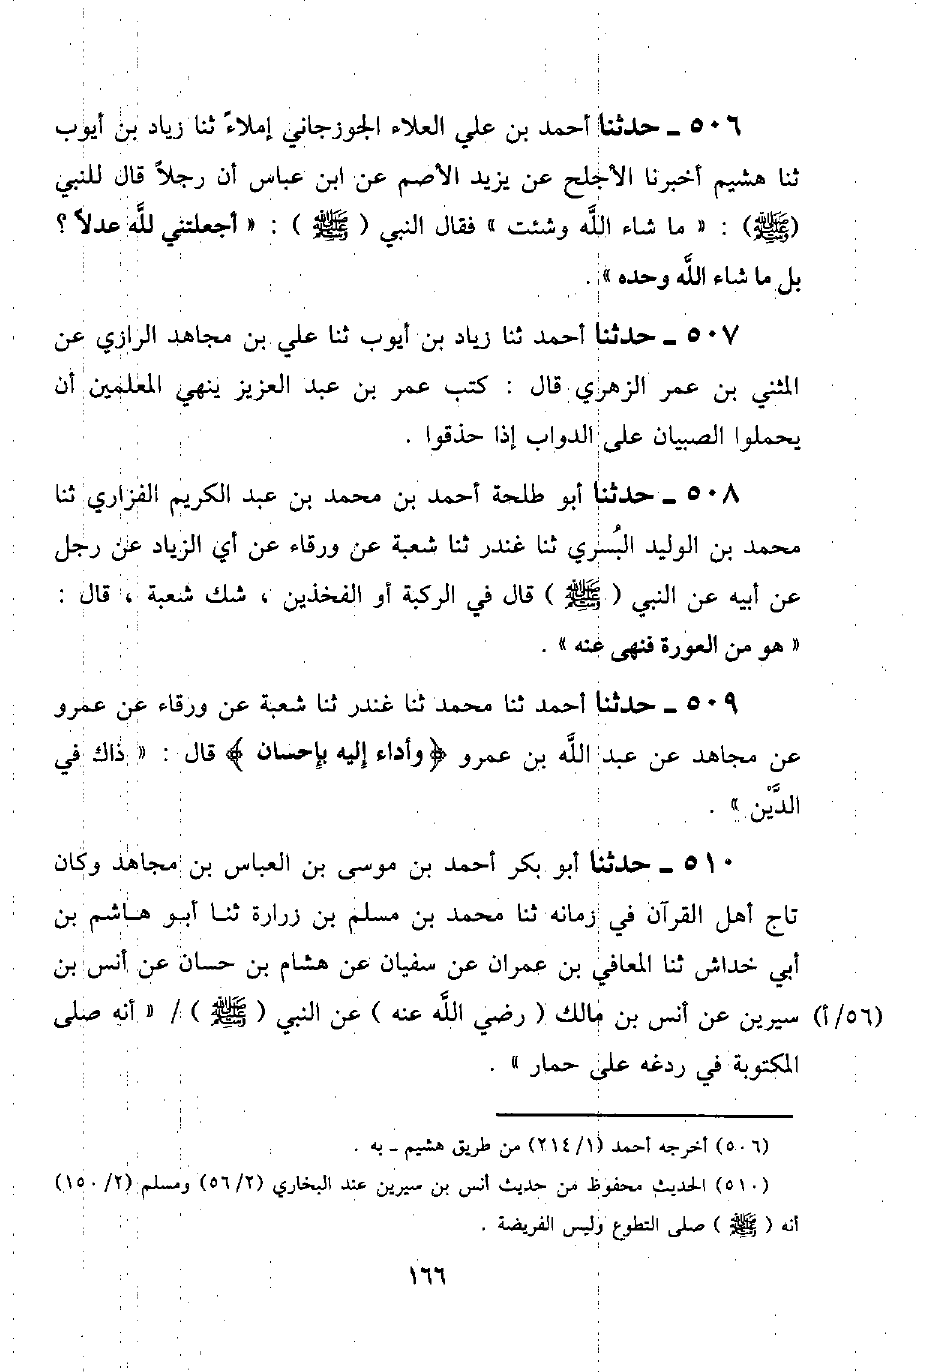 ٥٠٦ ـ حدثنا أحمد بن علي العلاء الجوزجاني إملاءً ثنا زياد بن أيوب
ثنا هشيم أخبرنا الأجلح عن يزيد الأصم عن ابن عباس أن رجلاً قال للنبي
(ﷺ) : « ما شاء اللَّه وشئت » فقال النبي ( ﷺ ) : « أجعلتني للَّه عدلاً ؟
بل ما شاء اللَّه وحده » .
٥٠٧ ـ حدثنا أحمد ثنا زياد بن أيوب ثنا علي بن مجاهد الرازي عن
المثني بن عمر الزهري قال : كتب عمر بن عبد العزيز ينهي المعلمين أن
يحملوا الصبيان على الدواب إذا حذقوا .
٥٠٨ ـ حدثنا أبو طلحة أحمد بن محمد بن عبد الكريم الفزاري ثنا
محمد بن الوليد البُسري ثنا غندر ثنا شعبة عن ورقاء عن أي الزياد عن رجل
عن أبيه عن النبي ( ﷺ ) قال في الركبة أو الفخذين ، شك شعبة ، قال :
« هو من العورة فنهى عنه » .
٥٠٩ ـ حدثنا أحمد ثنا محمد ثنا غندر ثنا شعبة عن ورقاء عن عمرو
عن مجاهد عن عبد اللَّه بن عمرو ﴿ وأداء إليه بإحسان ﴾ قال : « ذاك في
الدَّيْن » .
٥١٠ ـ حدثنا أبو بكر أحمد بن موسى بن العباس بن مجاهد وكان
تاج أهل القرآن في زمانه ثنا محمد بن مسلم بن زرارة ثنا أبو هاشم بن
أبي خداش ثنا المعافي بن عمران عن سفيان عن هشام بن حسان عن أنس بن
(٥٦/أ) سيرين عن أنس بن مالك ( رضي اللَّه عنه ) عن النبي ( ﷺ ) / « أنه صلى
المكتوبة في ردغه على حمار » .
(٥٠٦) أخرجه أحمد (٢١٤/١) من طريق هشيم ـ به .
(٥١٠) الحديث محفوظ من حديث أنس بن سيرين عند البخاري (٥٦/٢) ومسلم (١٥٠/٢)
أنه ( ﷺ ) صلى التطوع وليس الفريضة .
١٦٦